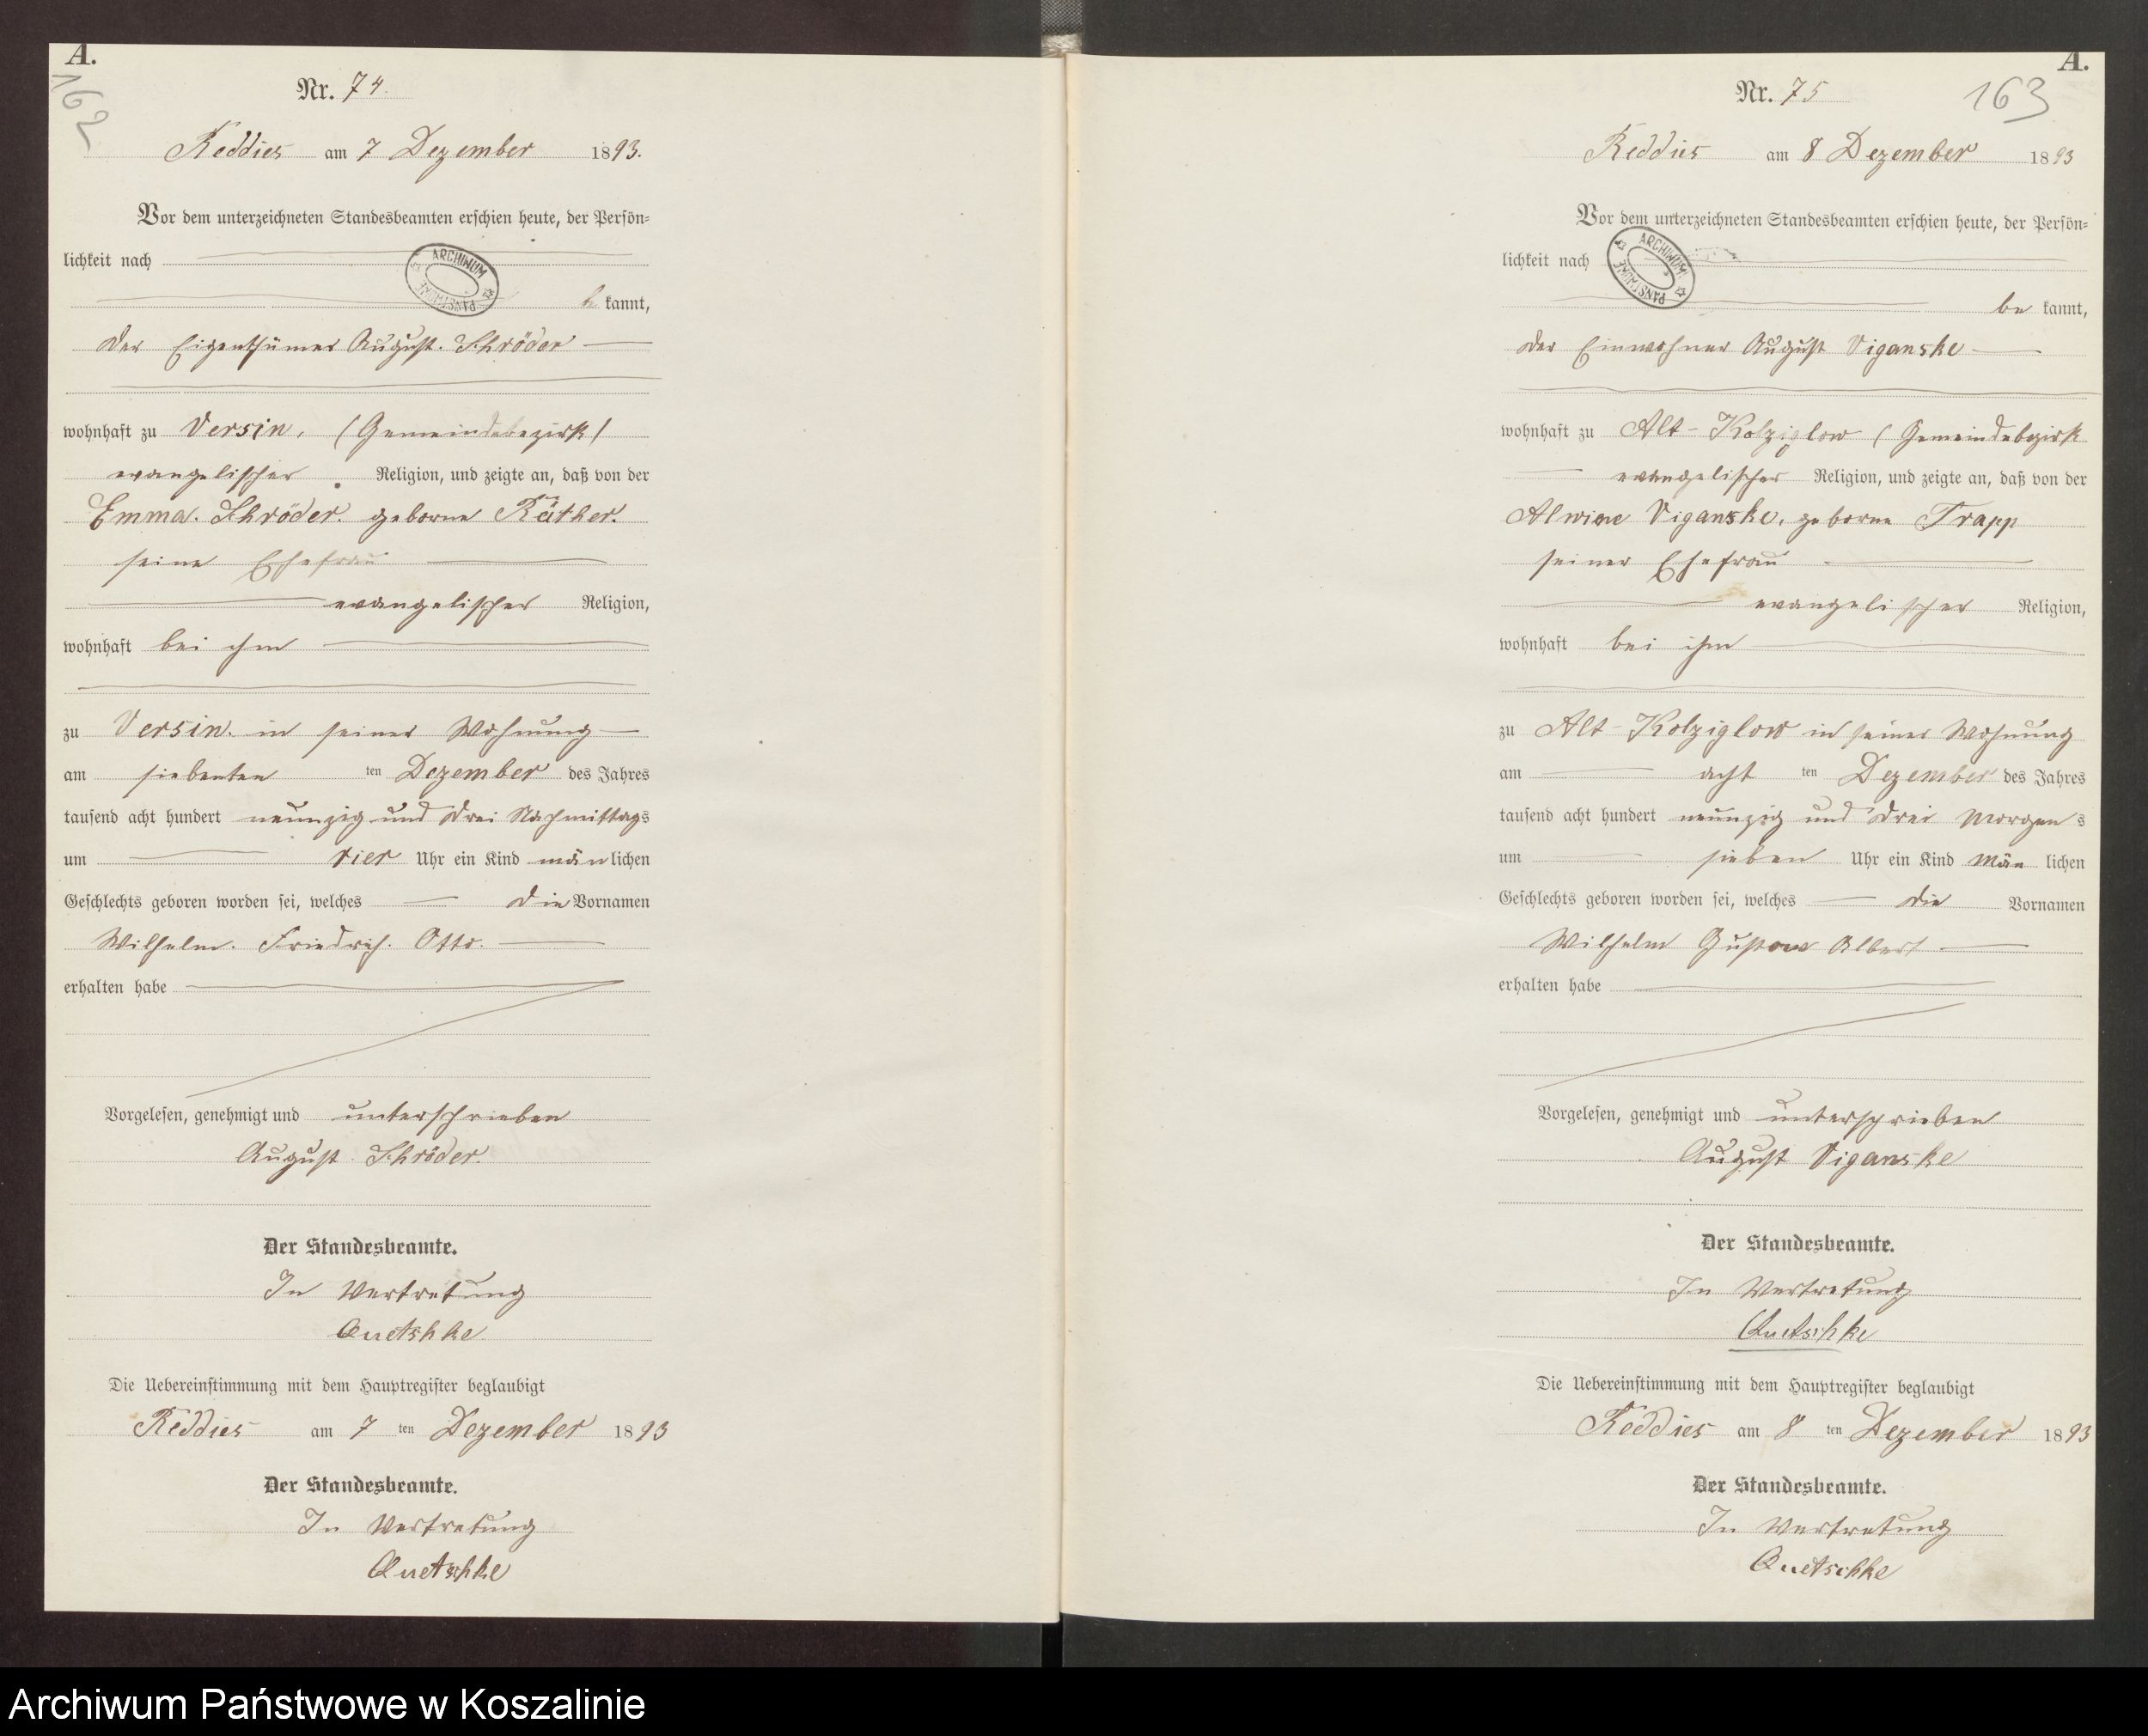 A.
162
Nr. 74.
Reddies am 7 Dezember 1893.
Vor dem unterzeichneten Standesbeamten erschien heute, der Persön=
lichkeit nach
ARCHIWUM PAŃSTWOWE
kannt,
der Eigenthümer August Schröder
wohnhaft zu Versin. (Gemeindebezirk)
evangelischer Religion, und zeigte an, daß von der
Emma Schröder. geborne Räther.
seine Ehefrau
evangelischer Religion,
wohnhaft bei ihm
zu Versin. in seiner Wohnung
am siebenten ten Dezember des Jahres
tausend acht hundert neunzig und drei Nachmittags
um vier Uhr ein Kind mänlichen
Geschlechts geboren worden sei, welches die Vornamen
Wilhelm. Friedrich. Otto.
erhalten habe
Vorgelesen, genehmigt und unterschrieben
August Schröder.
Der Standesbeamte.
In Vertretung
Quetschke
Die Uebereinstimmung mit dem Hauptregister beglaubigt
Reddies am 7 ten Dezember 1893
Der Standesbeamte.
In Vertretung
Quetschke
A.
163
Nr. 75
Reddies am 8 Dezember 1893
Vor dem unterzeichneten Standesbeamten erschien heute, der Persön=
lichkeit nach
ARCHIWUM PAŃSTWOWE
be kannt,
der Einwohner August Viganske
wohnhaft zu Alt-Kolziglow (Gemeindebezirk
evangelischer Religion, und zeigte an, daß von der
Alwine Viganske, geborne Trapp
seiner Ehefrau
evangelischer Religion,
wohnhaft bei ihm
zu Alt-Kolziglow in seiner Wohnung
am acht ten Dezember des Jahres
tausend acht hundert neunzig und drei Morgens
um sieben Uhr ein Kind män lichen
Geschlechts geboren worden sei, welches die Vornamen
Wilhelm Gustav Albert
erhalten habe
Vorgelesen, genehmigt und unterschrieben
August Viganske
Der Standesbeamte.
In Vertretung
Quetschke
Die Uebereinstimmung mit dem Hauptregister beglaubigt
Reddies am 8 ten Dezember 1893
Der Standesbeamte.
In Vertretung
Quetschke
Archiwum Państwowe w Koszalinie